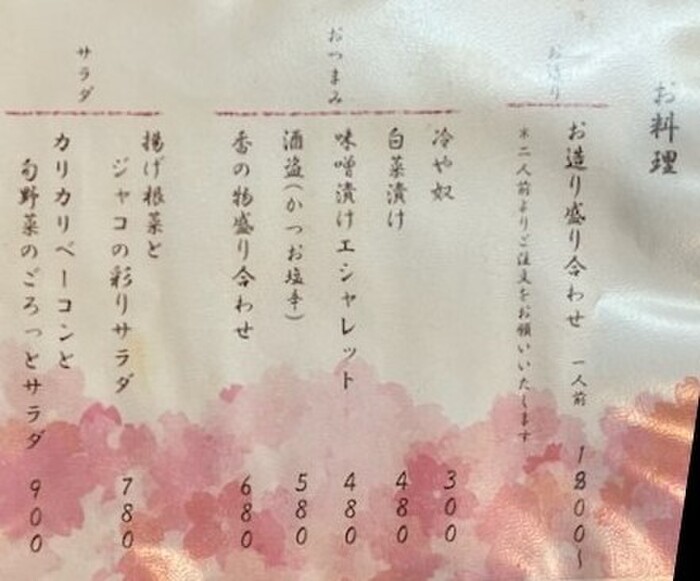 お料理
お造り
お造り盛り合わせ 一人前 1800〜
*二人前よりご注文をお願いいたします
おつまみ
冷や奴 300
白菜漬け 480
味噌漬けエシャレット 480
酒盗(かつお塩辛) 580
香の物盛り合わせ 680
サラダ
揚げ根菜と
ジャコの彩りサラダ 780
カリカリベーコンと
旬野菜のごろっとサラダ 900